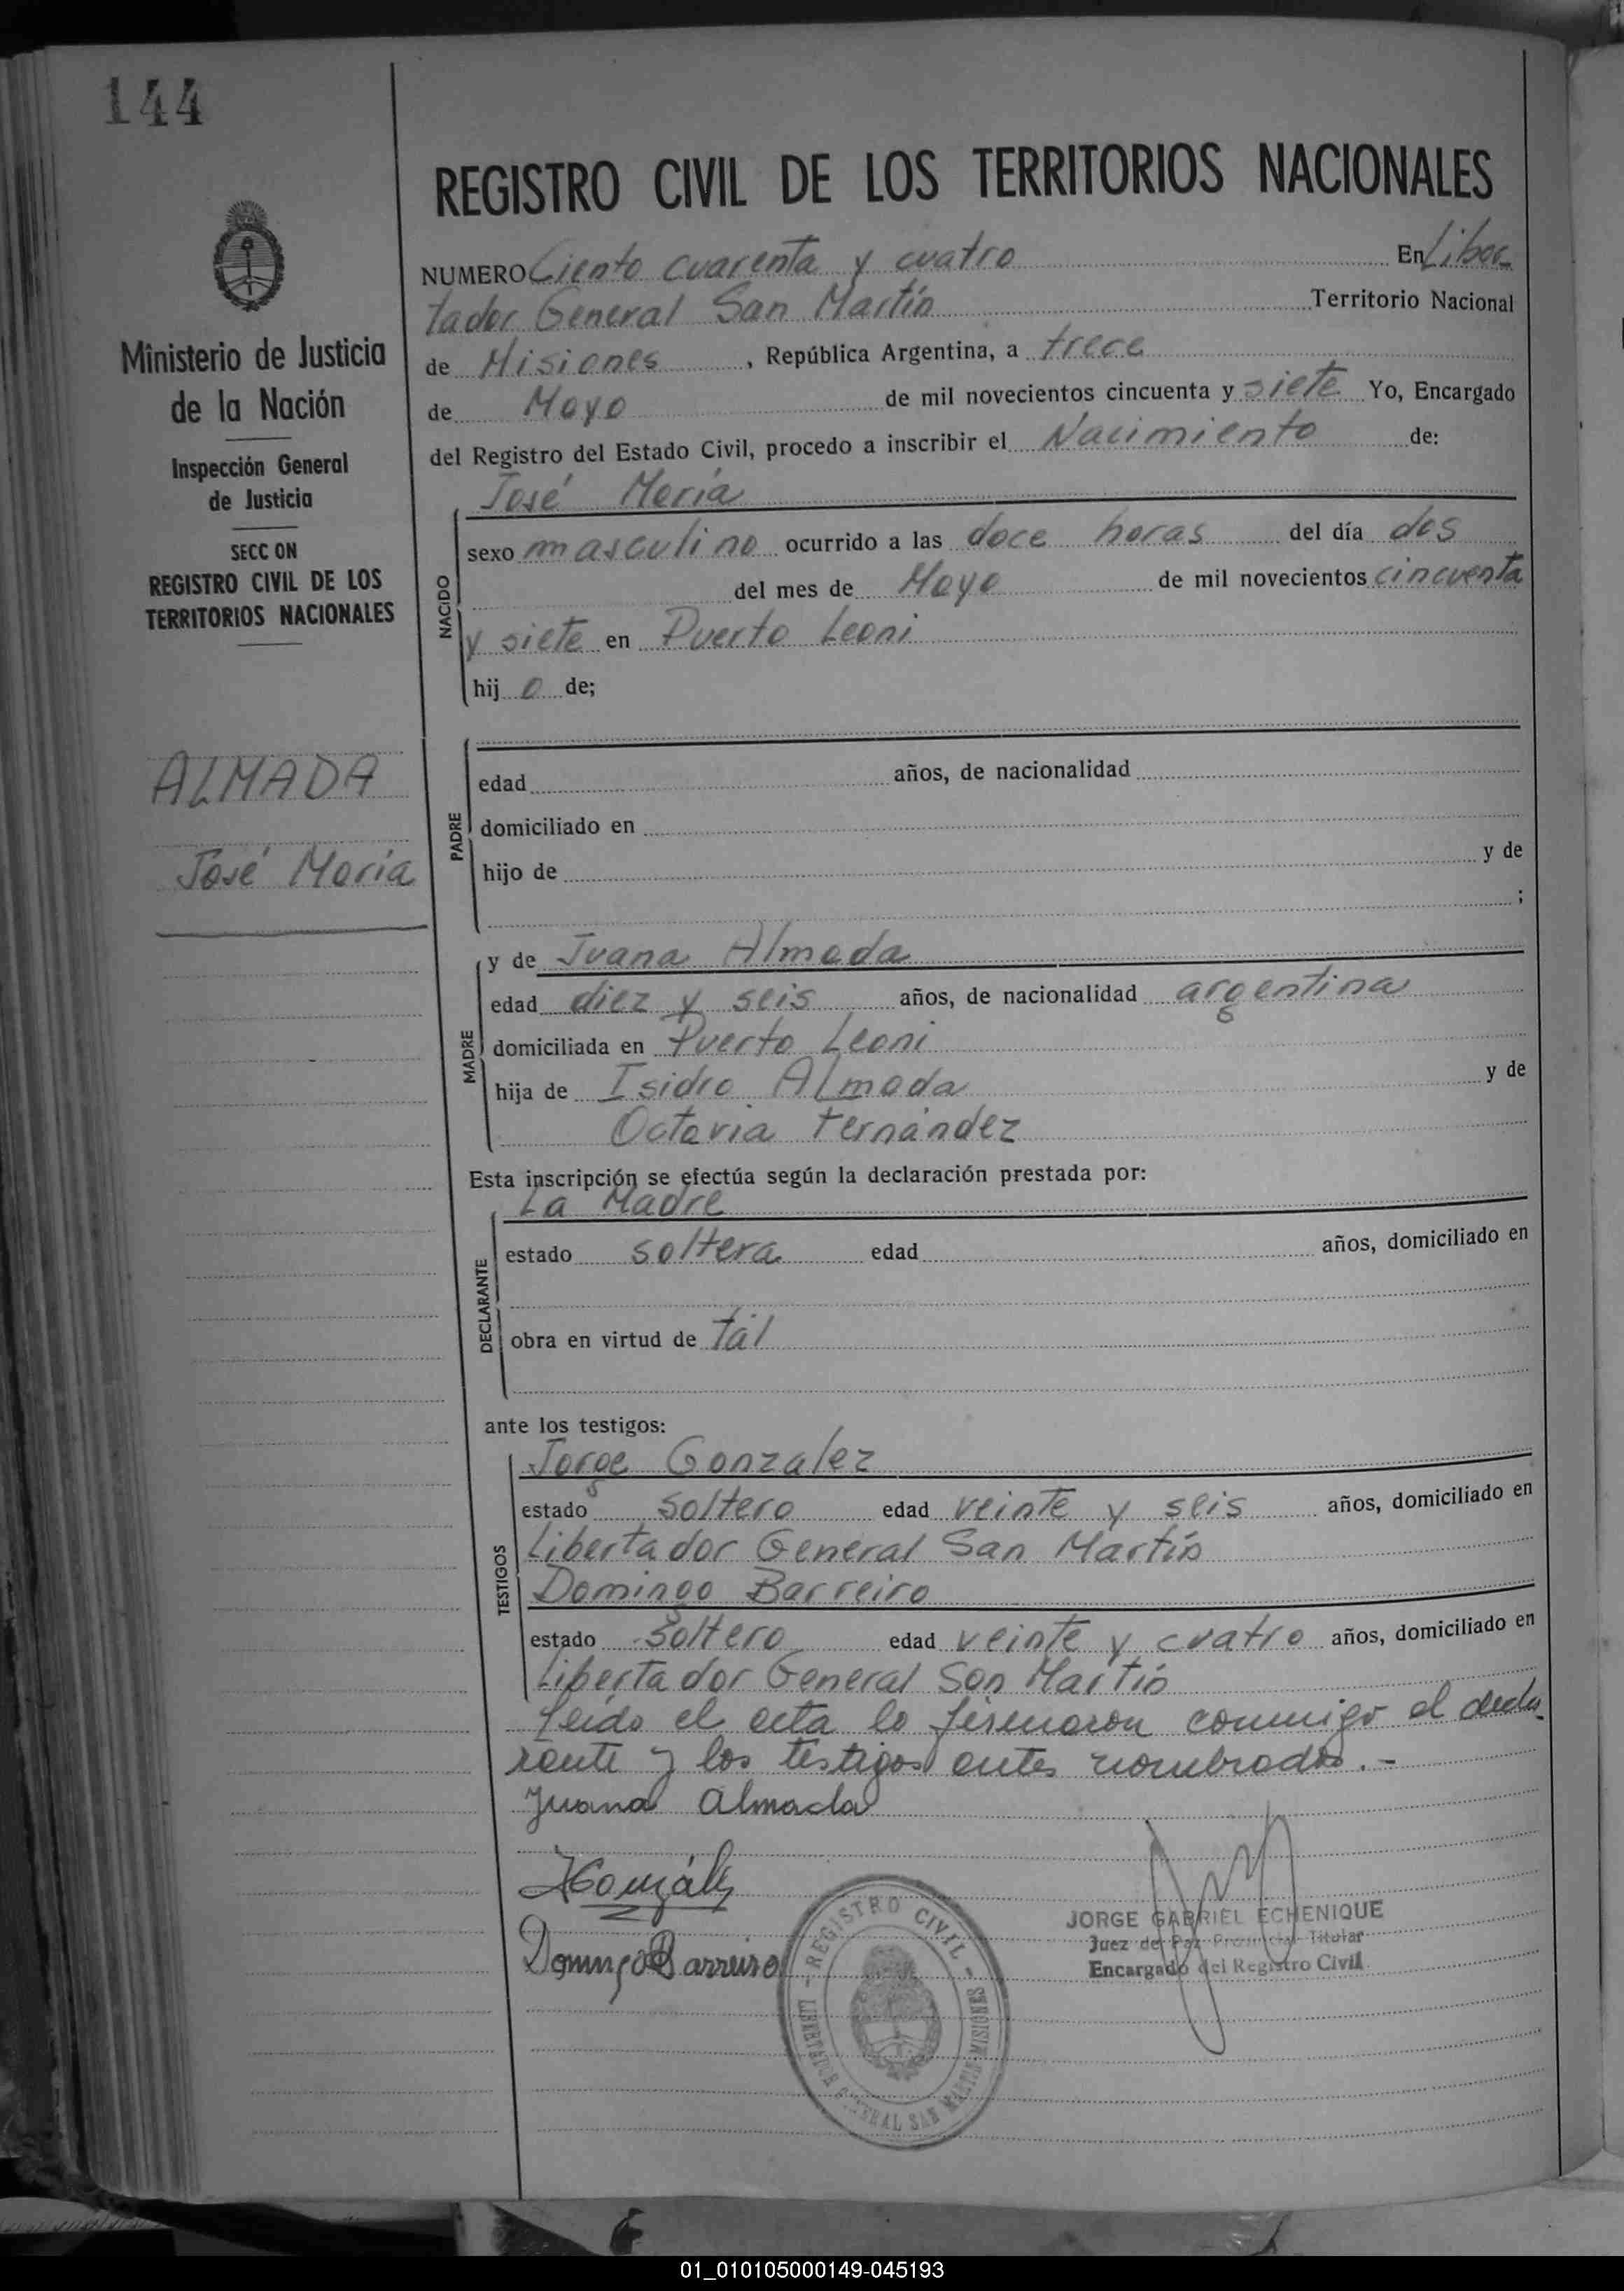 144
Ministerio de Justicia
de la Nación
Inspección General
de Justicia
SECC ON
REGISTRO CIVIL DE LOS
TERRITORIOS NACIONALES
ALMADA
José María
REGISTRO CIVIL DE LOS TERRITORIOS NACIONALES
NUMERO Ciento cuarenta y cuatro En Liber
tador General San Martín Territorio Nacional
de Misiones, República Argentina, a trece
de Mayo de mil novecientos cincuenta y siete Yo, Encargado
del Registro del Estado Civil, procedo a inscribir el Nacimiento de:
José María
NACIDO
sexo masculino ocurrido a las doce horas del día dos
del mes de Mayo de mil novecientos cincuenta
y siete en Puerto Leoni
hijo de;
PADRE
edad años, de nacionalidad
domiciliado en
hijo de y de
;
MADRE
y de Juana Almada
edad diez y seis años, de nacionalidad argentina
domiciliada en Puerto Leoni
hija de Isidro Almada y de
Octavia Fernández
Esta inscripción se efectúa según la declaración prestada por:
La Madre
DECLARANTE
estado soltera edad años, domiciliado en
obra en virtud de tál
ante los testigos:
TESTIGOS
Jorge Gonzalez
estado soltero edad veinte y seis años, domiciliado en
Libertador General San Martín
Domingo Barreiro
estado soltero edad veinte y cuatro años, domiciliado en
Libertador General San Martín
Leída el acta la firmaron conmigo el decla
rante y los testigos antes nombrados.-
Juana Almada
JGonzález
Domingo Barreiro
REGISTRO CIVIL
LIBERTADOR GENERAL SAN MARTIN MISIONES
JORGE GABRIEL ECHENIQUE
Juez de Paz Provincial Titular
Encargado del Registro Civil
01_010105000149-045193